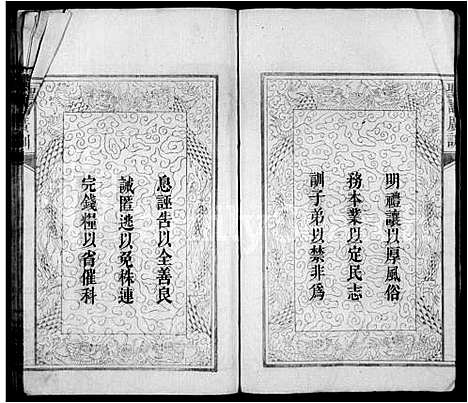 明禮讓以厚風俗
務本業以定民志
訓子弟以禁非為
息誣告以全善良
誡匿逃以免株連
完錢糧以省催科